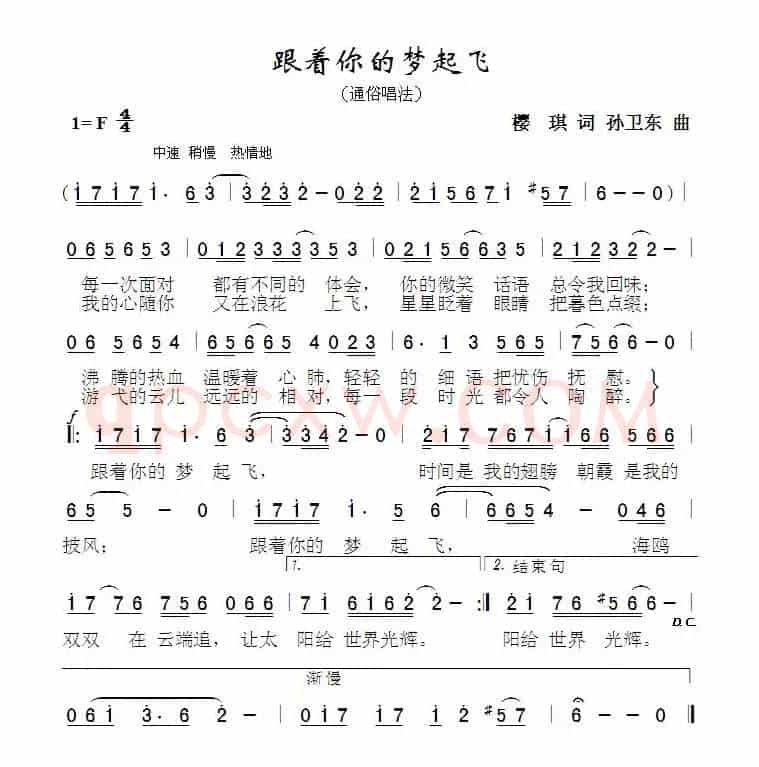 跟着你的梦起飞
（通俗唱法）
1= F 4/4 樱 琪 词 孙卫东 曲
中速 稍慢 热情地
( i 7 i 7 i · 6 3 | 3 2 3 2 - 0 2 2 | 2 1 5 6 7 i #5 7 | 6 - - 0 ) |
0 6 5 6 5 3 | 0 1 2 3 3 3 3 5 3 | 0 2 1 5 6 6 3 5 | 2 1 2 3 2 2 - |
每一次面对 都有不同的 体会， 你的微笑 话语 总令我回味；
我的心随你 又在浪花 上飞， 星星眨着 眼睛 把暮色点缀；
0 6 5 6 5 4 | 6 5 6 6 5 4 0 2 3 | 6 · 1 3 5 6 5 | 7 5 6 6 - 0 |
沸 腾的热血 温暖着 心 肺，轻轻 的 细 语 把忧伤 抚 慰。
游 弋的云儿 远远的 相 对，每一 段 时 光 都令人 陶 醉。
f
‖: i 7 i 7 i · 6 3 | 3 3 3 4 2 - 0 | 2 1 7 7 6 7 i i 6 6 5 6 6 |
跟着你的 梦 起 飞， 时间是 我的翅膀 朝霞 是我的
6 5 5 - 0 | i 7 i 7 i · 5 6 | 6 6 5 4 - 0 4 6 |
披风； 跟着你的 梦 起 飞， 海鸥
1. 2. 结束句
i 7 7 6 7 5 6 0 6 6 | i 7 6 i 6 2 2 - :‖ 2 i 7 6 #5 6 6 - |
D.C.
双双 在 云端追，让太 阳给 世界光辉。 阳给 世界 光辉。
渐慢
0 6 i 3 · 2 | 2 - - - | 0 i 7 i 7 i 2 #5 7 | 6 - - 0 ‖
qpcxw.COM